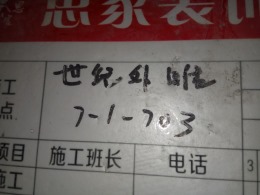 忠家装饰
工 世纪外滩
点 7-1-703
项目 施工班长 电话 3
施工